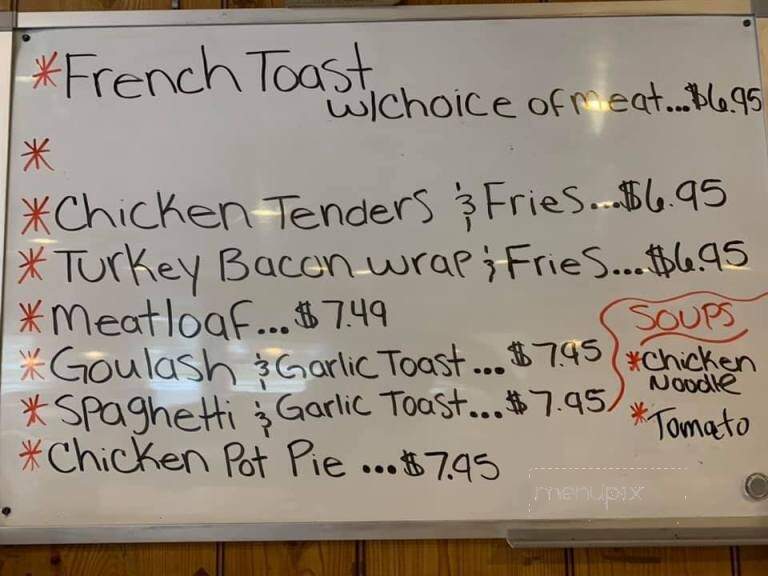 * French Toast
w/choice of meat...$6.95
*
* Chicken Tenders & Fries...$6.95
* Turkey Bacon wrap & Fries...$6.95
* Meatloaf...$7.49
* Goulash & Garlic Toast...$7.95
* Spaghetti & Garlic Toast...$7.95
* Chicken Pot Pie...$7.95
SOUPS
* Chicken
Noodle
* Tomato
menupix